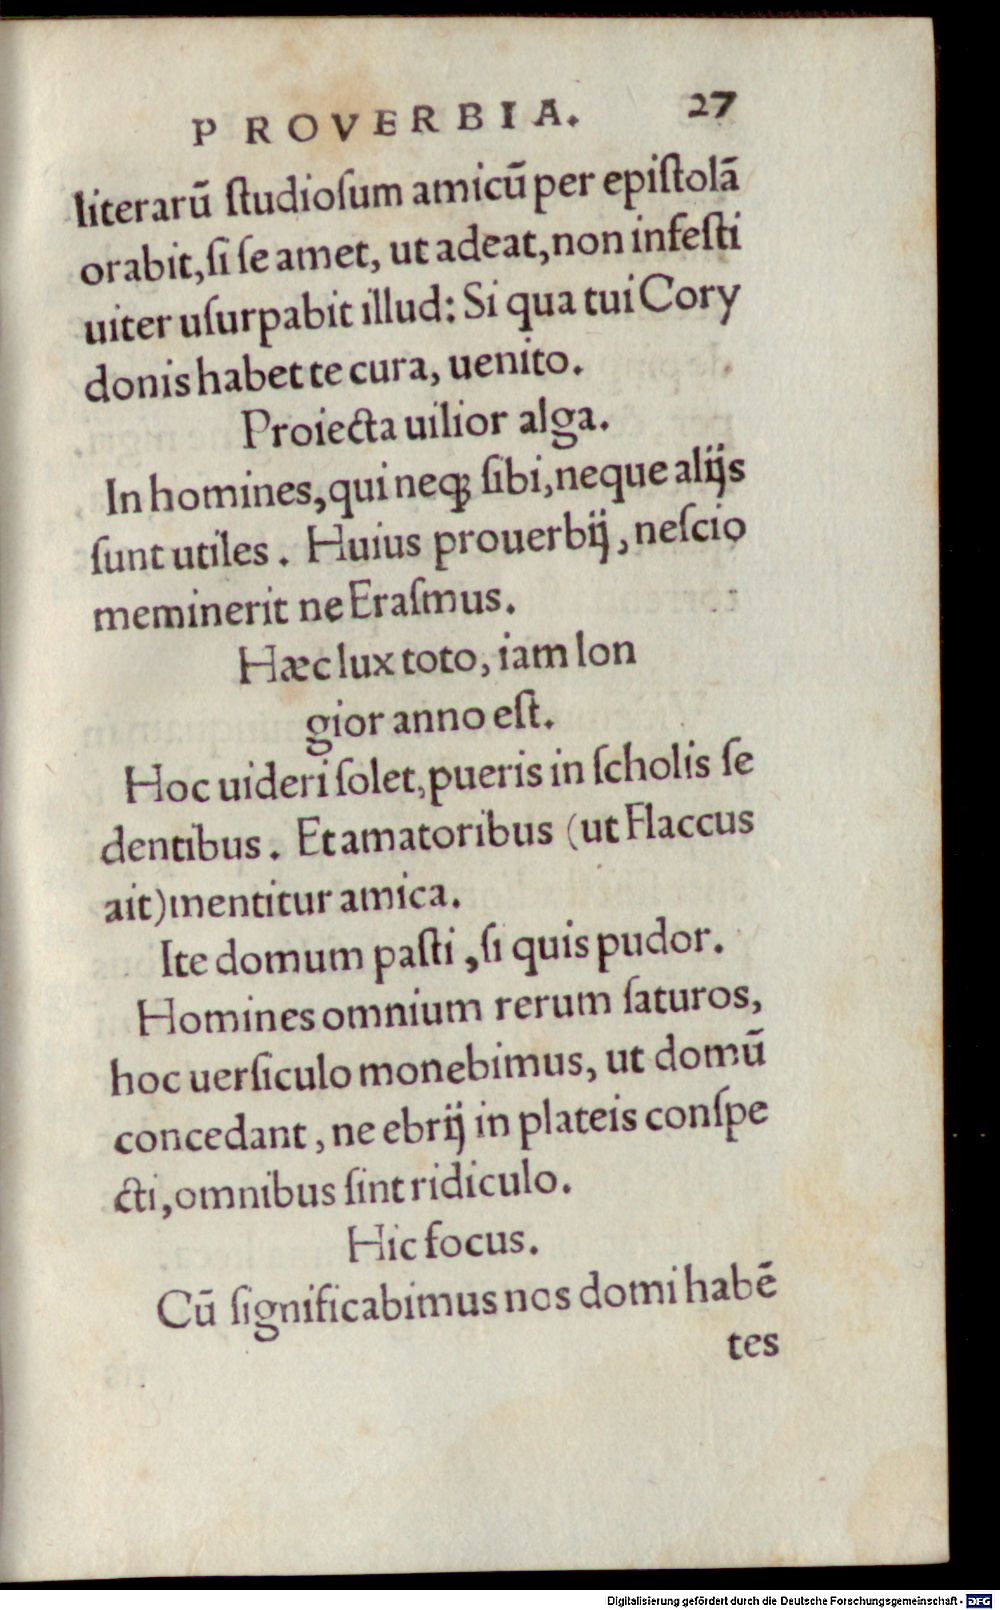 PROVERBIA. 27
literarū ſtudioſum amicū per epiſtolā
orabit, ſi ſe amet, ut adeat, non infeſti
uiter uſurpabit illud: Si qua tui Cory
donis habet te cura, uenito.
Proiecta uilior alga.
In homines, qui neqꝫ ſibi, neque alijs
ſunt utiles. Huius prouerbij, neſcio
meminerit ne Eraſmus.
Hæc lux toto, iam lon
gior anno eſt.
Hoc uideri ſolet, pueris in ſcholis ſe
dentibus. Et amatoribus (ut Flaccus
ait) mentitur amica.
Ite domum paſti, ſi quis pudor.
Homines omnium rerum ſaturos,
hoc uerſiculo monebimus, ut domū
concedant, ne ebrij in plateis conſpe
cti, omnibus ſint ridiculo.
Hic focus.
Cū ſignificabimus nos domi habē
tes
Digitalisierung gefördert durch die Deutsche Forschungsgemeinschaft - DFG